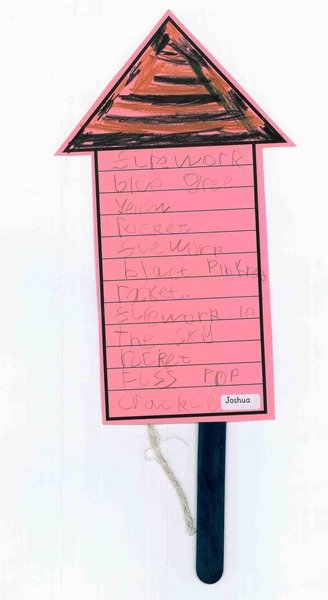 firework
blue Gree
Yellow
rocket
firework
blact Pink red
rocket.
firework in
The sky
rocket
FLSS POP
crackle Joshua